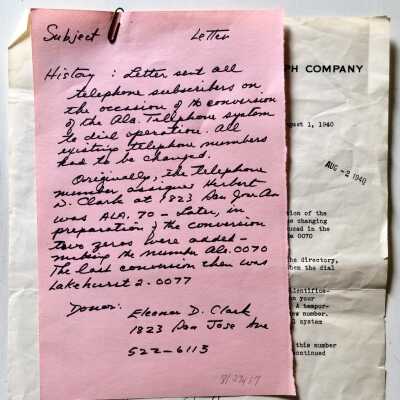 Subject Letter
History : Letter sent all
telephone subscribers on
the occasion of the conversion
of the Ala. Telephone system
to dial operation. All
existing telephone numbers
had to be changed.
Originally, the telephone
number assigned Herbert
D. Clark at 1823 San Jose Ave
was ALA. 70 - Later, in
preparation of the conversion
two zeros were added -
making the number Ala. 0070
The last conversion then was
Lakehurst 2-0077
Donor: Eleanor D. Clark
1823 San Jose Ave
522-6113
PH COMPANY
gust 1, 1940
AUG -2 1940
sion of the
changing
used in the
0070
e directory,
hen the dial
identifica-
on your
A tempor-
ew number.
l system
this number
continued